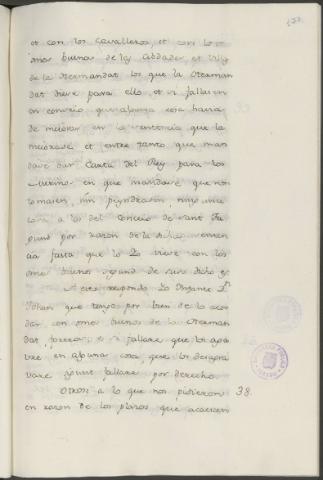 et con los Cavalleros, et con los
omes buenos de la Cibdades, et Villas
de la Hermandat los que la Herman
dat diere para ello, et si fallaren
en conceio que alguna cosa haia
de meiorar en la sentencia que la
meiorase et entre tanto que man
dase dar Carta del Rey para los
Merinos en que mandase que non
tomasen, sin peyndrasen, ninguna
cosa a los del conceio de Sant Fa
gund por razon de la dicha senten
cia fasta que lo viese con los
omes buenos segund de suso dicho es
A esto respondo Yo Infante D.n
Johan que tengo por bien de lo acor
dar con omes buenos de la Herman
dat, fueren, et si fallare que los agra
vie en alguna cosa, que los desagra
viare segunt fallare por derecho.
Otrosi a lo que nos pidieron 38.
en razon de los plazos que acaescen